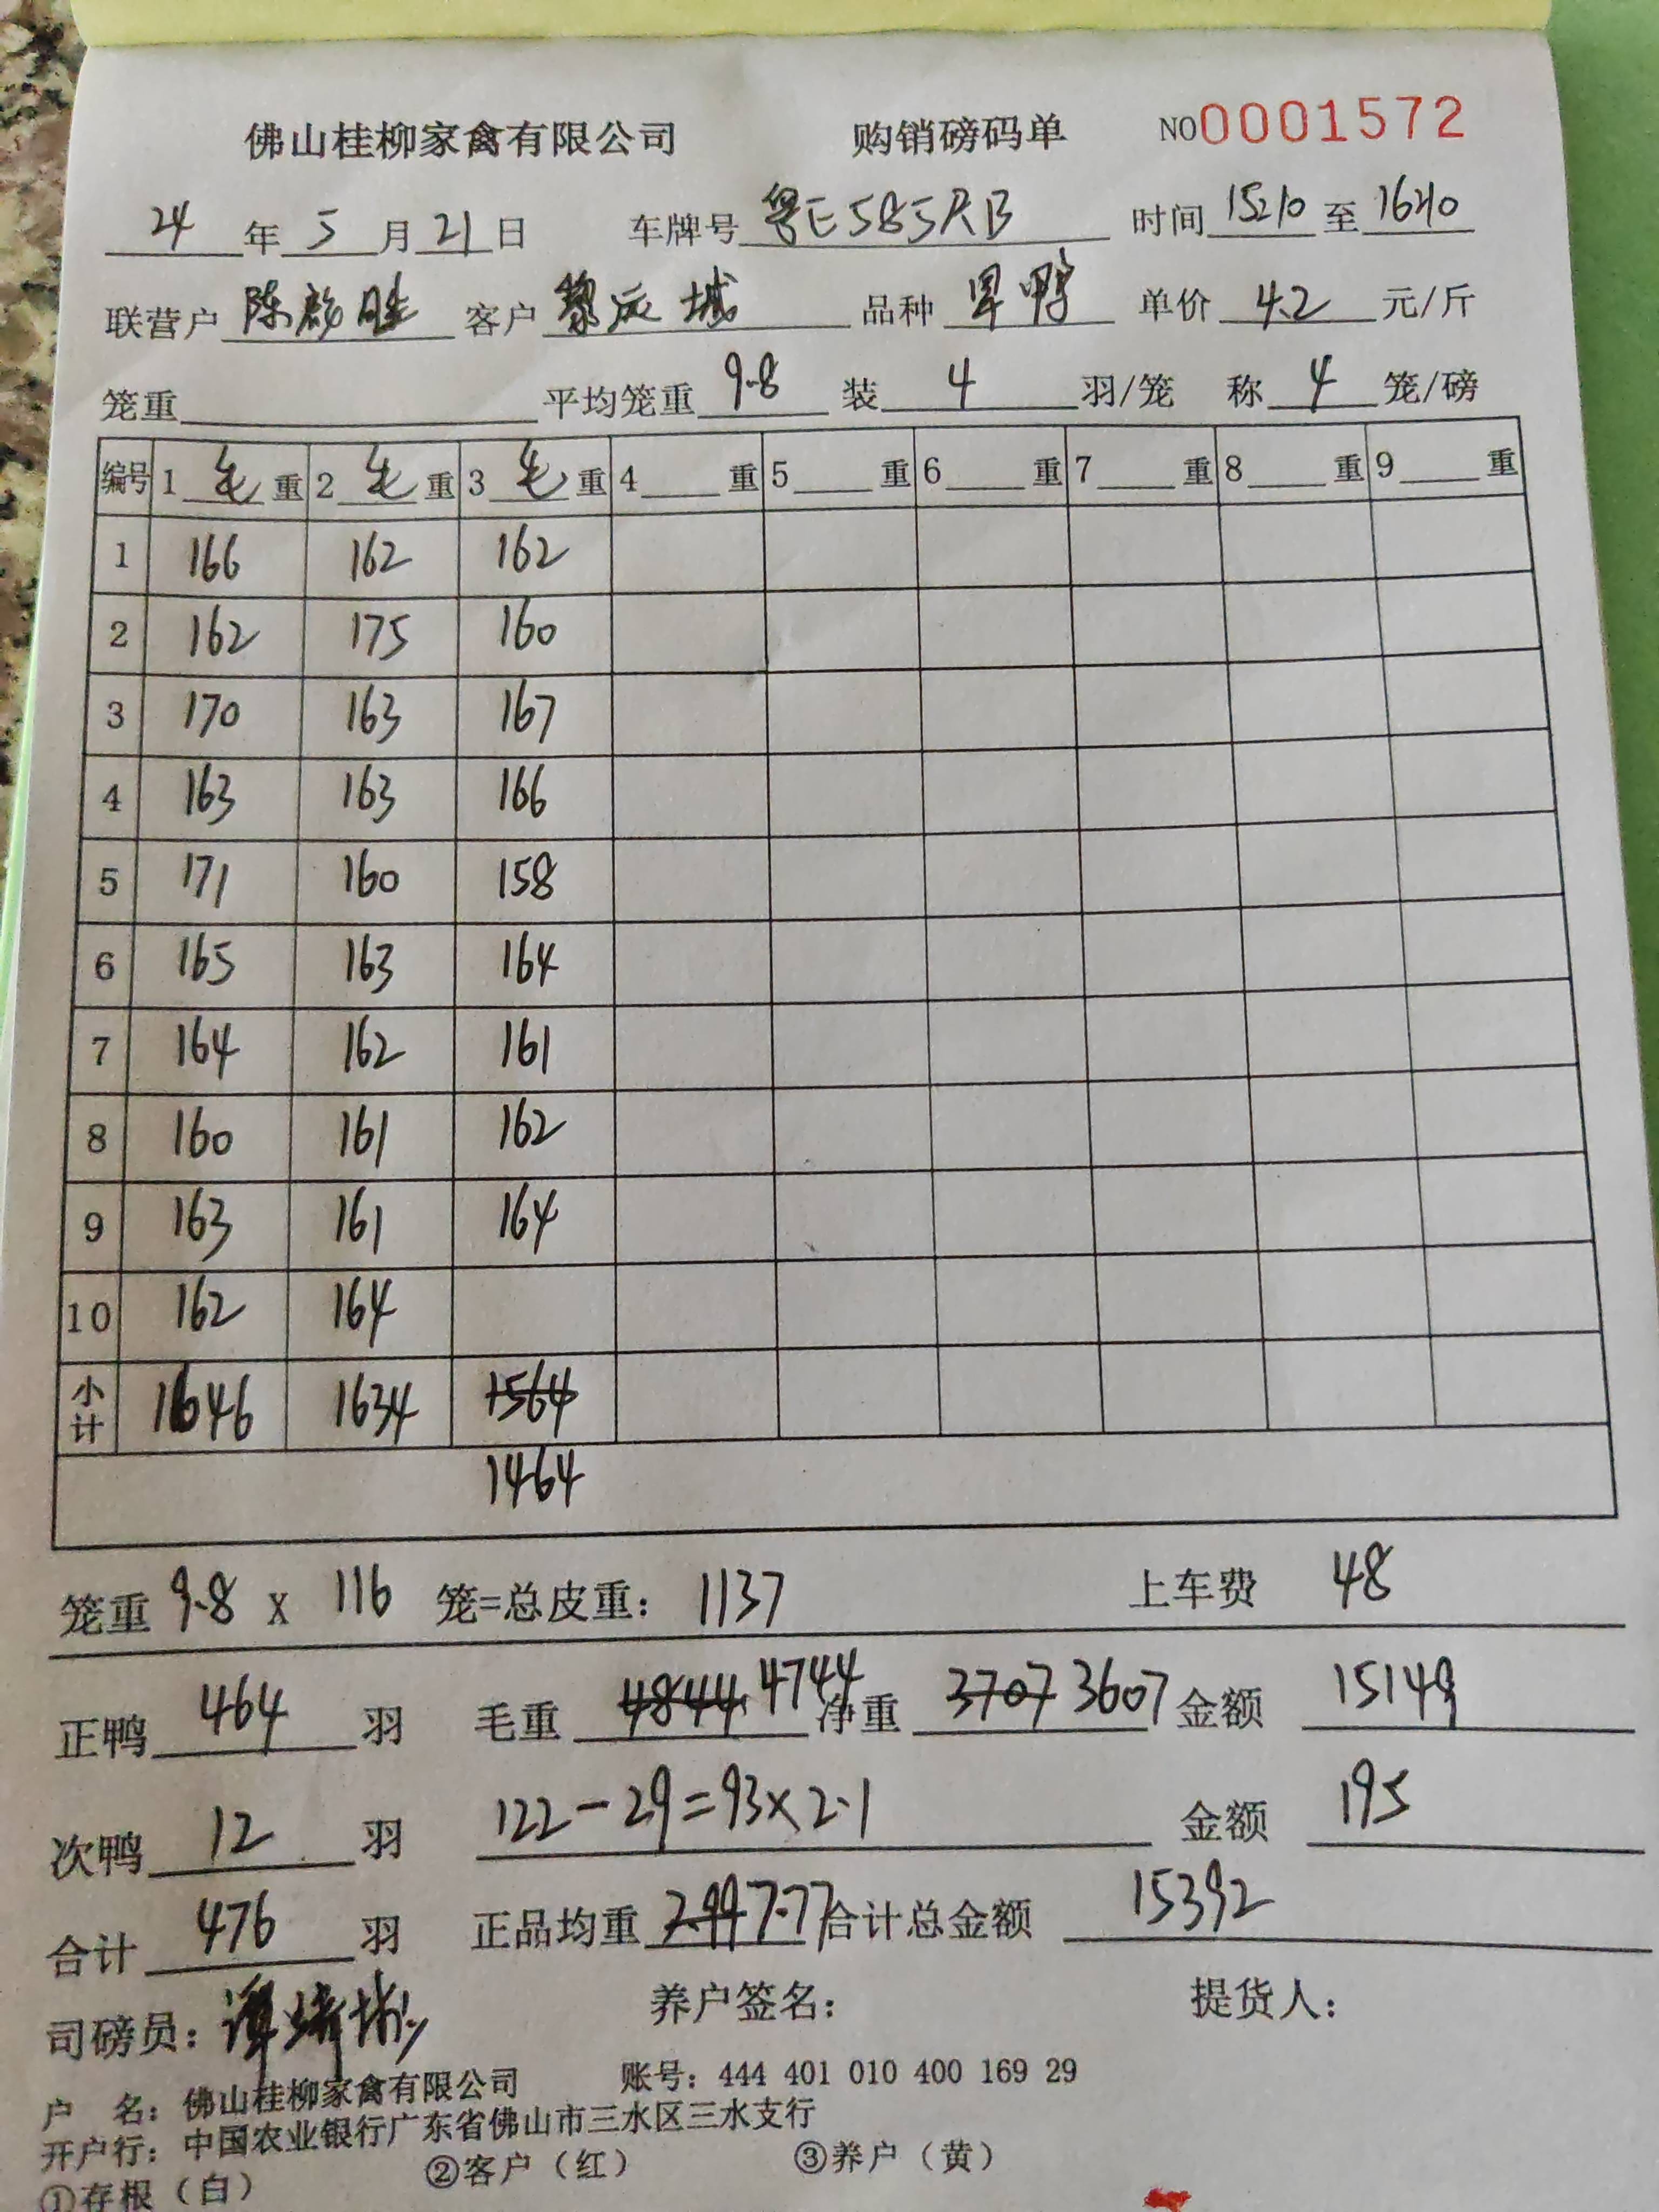 佛山桂柳家禽有限公司 购销磅码单 NO0001572
24年5月21日 车牌号 粤E585RB 时间 15210 至 16210
联营户 陈 客户 黎庆城 品种 旱鸭 单价 4.2 元/斤
笼重 平均笼重 9.8 装 4 羽/笼 称 4 笼/磅
编号 1 毛 重 2 毛 重 3 毛 重 4 重 5 重 6 重 7 重 8 重 9 重
1 166 162 162
2 162 175 160
3 170 163 167
4 163 163 166
5 171 160 158
6 165 163 164
7 164 162 161
8 160 161 162
9 163 161 164
10 162 164
小计 1646 1634 1564
1464
笼重 9.8 X 116 笼=总皮重: 1137 上车费 48
正鸭 464 羽 毛重 4844 4744 净重 3707 3607 金额 15149
次鸭 12 羽 122-29=93×2.1 金额 195
合计 476 羽 正品均重 7.99 7.77 合计总金额 15392
司磅员: 养户签名: 提货人:
户 名: 佛山桂柳家禽有限公司 账号: 444 401 010 400 169 29
开户行: 中国农业银行广东省佛山市三水区三水支行
①存根（白） ②客户（红） ③养户（黄）